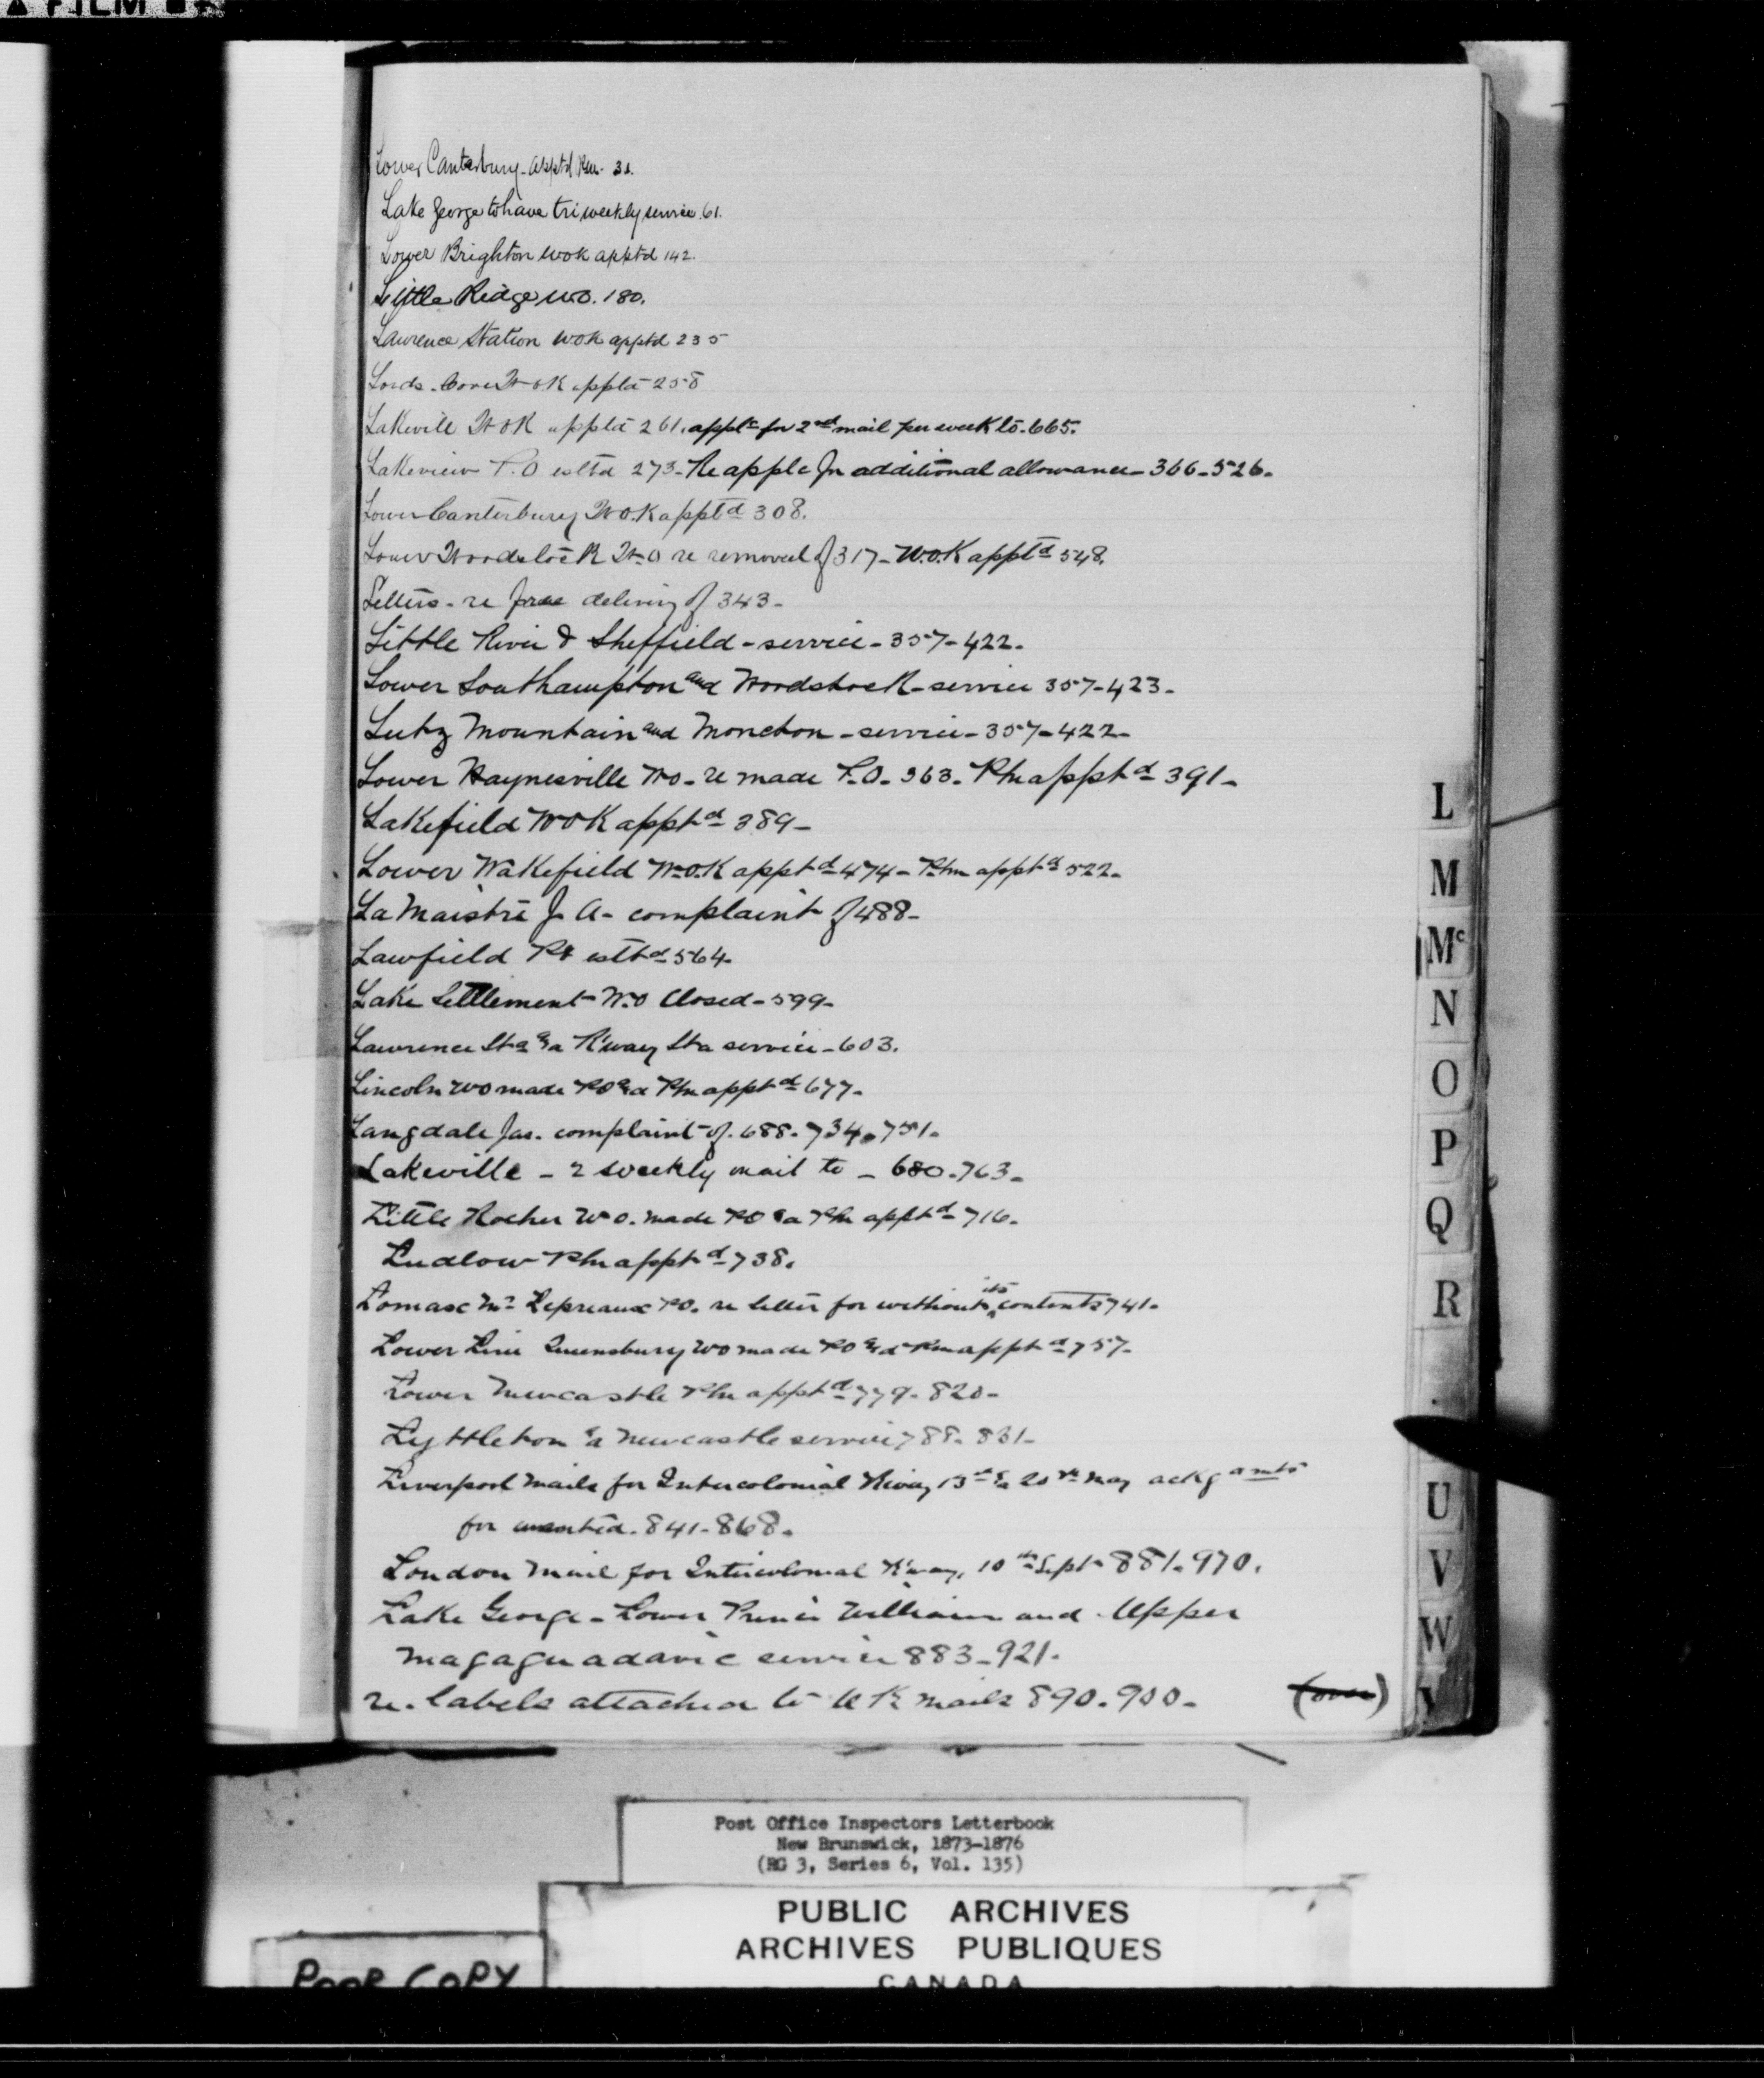 Lower Canterbury - apptd Pm. 31.
Lake George to have tri weekly service. 61.
Lower Brighton WOK apptd 142.
Little Ridge W.O. 180.
Lawrence Station WOK apptd 235
Lords Cove W O K apptd 258
Lakevill W O K apptd 261. applc for 2nd mail per week to. 665.
Lakeview P.O estd 273 - Re applc for additional allowance - 366 - 526.
Lower Canterbury W O. K apptd 308.
Lower Woodstock W.O re removal of 317 - W.O.K apptd 548.
Letters - re free delivery of 343 -
Little River & Sheffield - service - 357 - 422.
Lower Southampton and Woodstock - service 357 - 423 -
Lutz Mountain and Moncton - service - 357 - 422 -
Lower Haynesville WO - re made P.O. 363. Pm apptd 391 -
Lakefield WOK apptd 389 -
Lower Wakefield W.O.K apptd 474 - Pm apptd 522 -
La Maistre J. A - complaint of 488 -
Lawfield estd 564.
Lake Settlement W.O Closed - 599 -
Lawrence Sta & a R'way Sta service - 603.
Lincoln WO made PO & a Pm apptd 677.
Langdale Jas. complaint of. 688. 734. 751.
Lakeville - 2 weekly mail to - 680. 763.
Little Rocher W O. made PO & a Pm apptd 716.
Ludlow Pm apptd 738.
Lomax Mr Lepreaux PO. re letter for without its contents 741.
Lower Line Queensbury WO made PO & a Pm apptd 757.
Lower Newcastle Pm apptd 779 - 820 -
Lyttleton & Newcastle service 788. 831 -
Liverpool Mails for Intercolonial R'way 13th & 20th May ackgamts
for wanted. 841 - 868.
London Mail for Intercolonial R'way, 10th Sept 881. 970.
Lake George - Lower Prince William and Upper
Magaguadavic service 883 - 921.
re. labels attached to U K mails 890. 900 -
(over)
L
M
Mc
N
O
P
Q
R
U
V
W
Y
Post Office Inspectors Letterbook
New Brunswick, 1873-1876
(RG 3, Series 6, Vol. 135)
PUBLIC ARCHIVES
ARCHIVES PUBLIQUES
CANADA
POOR COPY